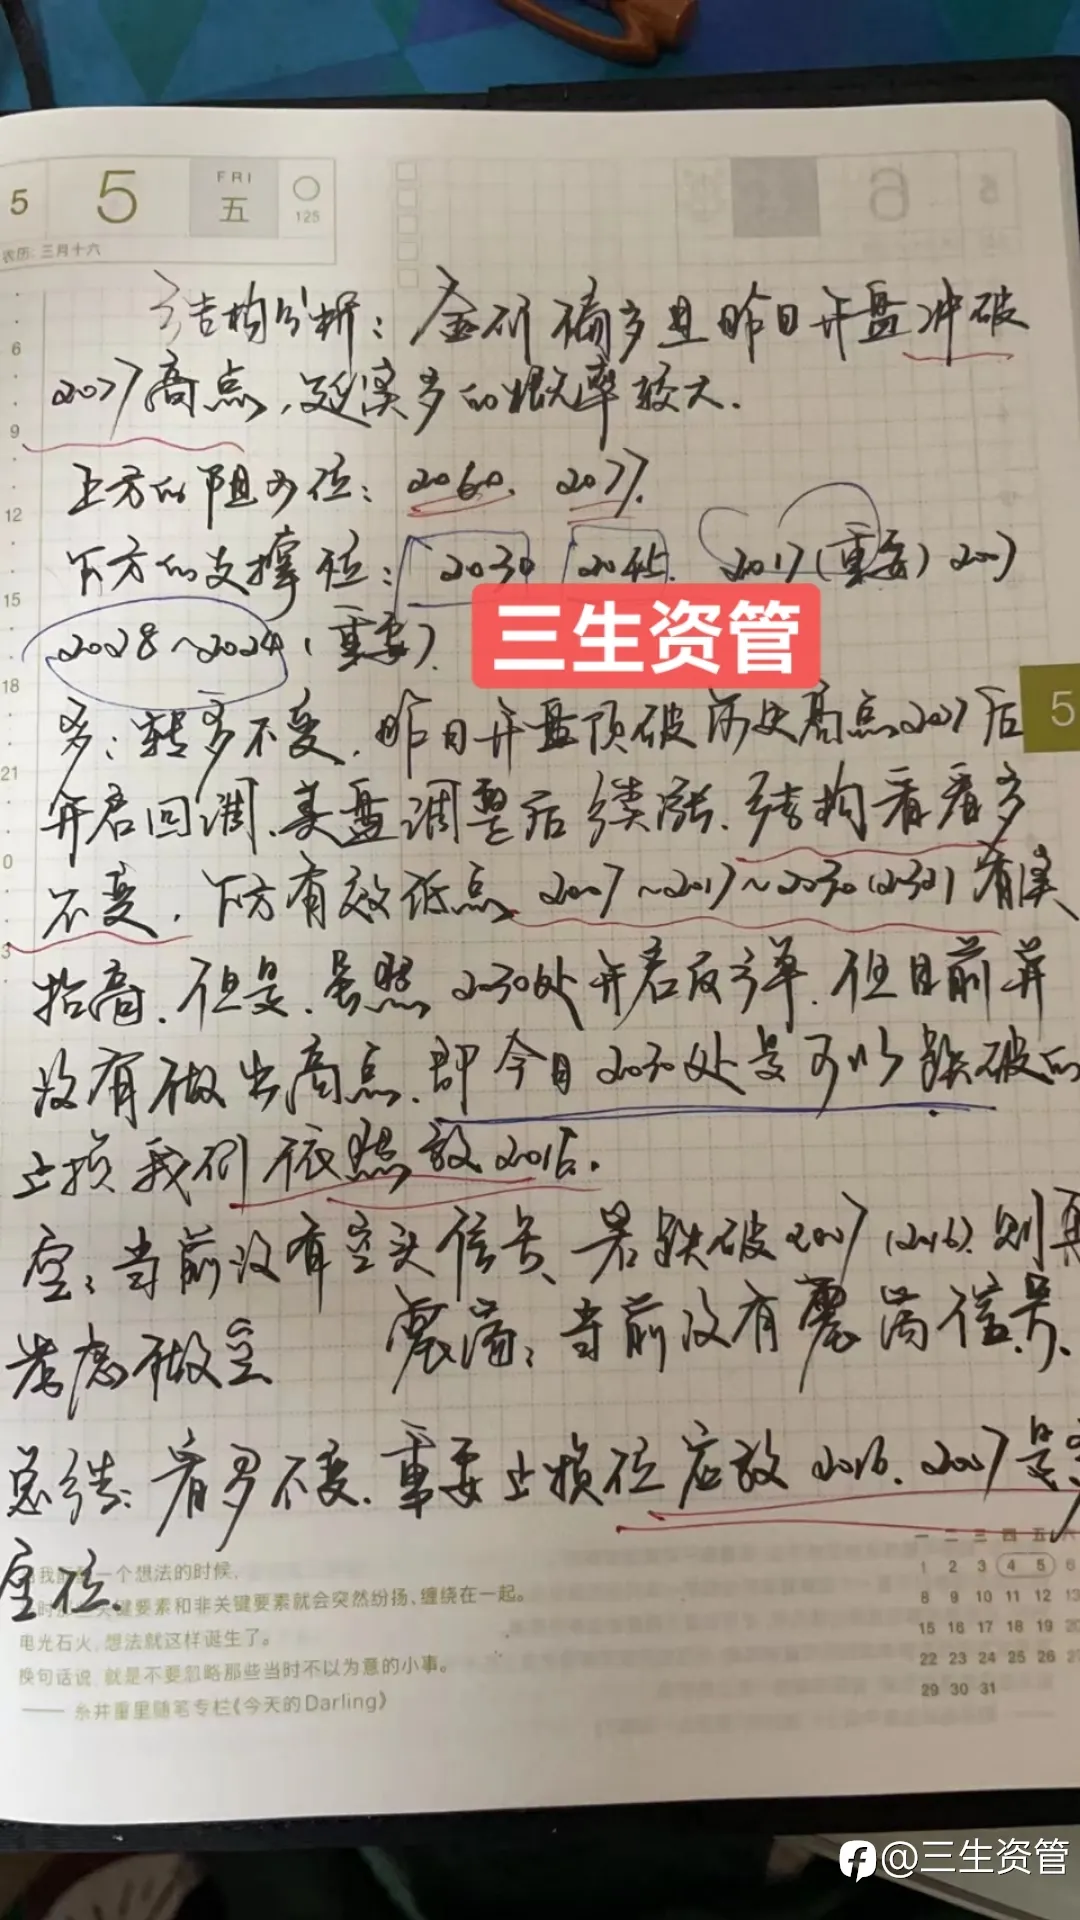 5
5
FRI
五
125
农历:三月十六
结构分析：金价偏多且昨日开盘冲破
2077高点，延续多的概率较大.
上方的阻力位：2060. 2077.
下方的支撑位：2030 2045. 2017(重要) 2007
2028~2024(重要).
三生资管
多：转多不变，昨日开盘顶破历史高点2077后
开启回调，美盘调整后续涨.结构看看多
不变，下方有效低点2007~2017~2030(2032)
抬高.但是.虽然2030处开启反弹.但目前并
没有做出高点.即今日2030处是可以跌破的
止损我们依然放2015.
空：当前没有空头信号、若跌破2007(2016).则再
考虑做空 震荡：当前没有震荡信号.
总结：看多不变.重要止损位应放2016.2007是多
空位.
6
9
12
15
18
21
0
3
5
一个想法的时候，
关键要素和非关键要素就会突然纷扬、缠绕在一起。
电光石火，想法就这样诞生了。
换句话说，就是不要忽略那些当时不以为意的小事。
—— 糸井重里随笔专栏《今天的Darling》
一 二 三 四 五 六
1 2 3 4 5 6
8 9 10 11 12 13
15 16 17 18 19 20
22 23 24 25 26 27
29 30 31
@三生资管